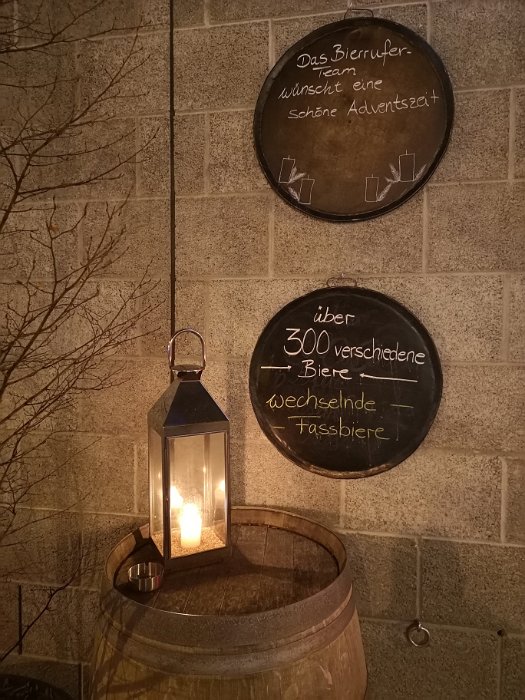 Das Bierrufer-
Team
wünscht eine
schöne Adventszeit
über
300 verschiedene
Biere
wechselnde
Fassbiere